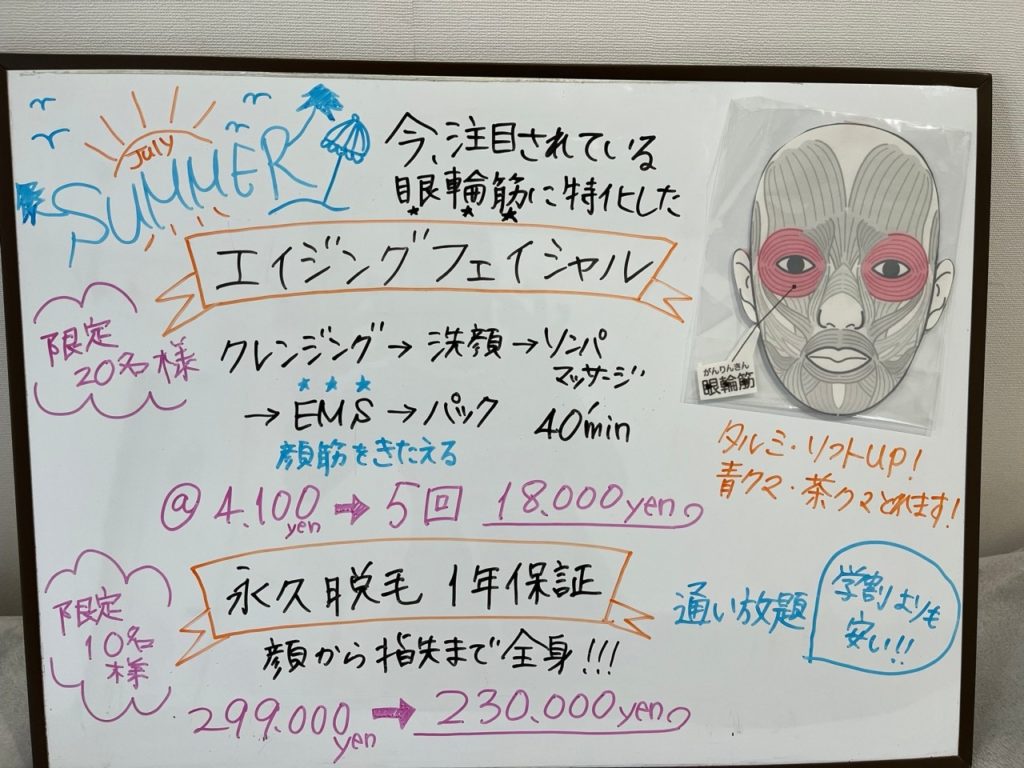 July
SUMMER
今、注目されている
眼輪筋に特化した
エイジングフェイシャル
限定
20名様
クレンジング→洗顔→リンパ
マッサージ
→EMS→パック
40min
顔筋をきたえる
@4.100yen➡5回 18.000yen
がんりんきん
眼輪筋
タルミ・リフトUP!
青クマ・茶クマとれます!
限定
10名
様
永久脱毛 1年保証
顔から指先まで全身!!!
299.000yen➡230.000yen
通い放題
学割よりも
安い!!